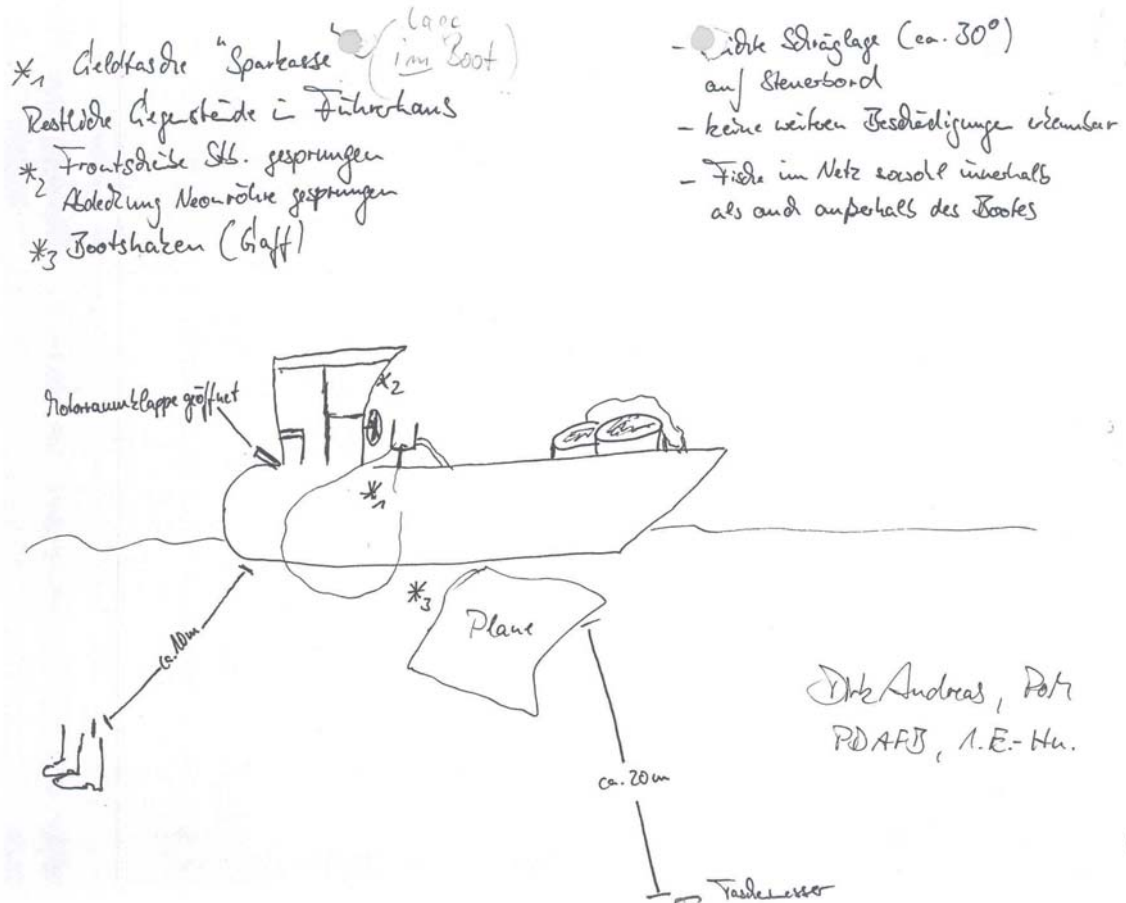 *1 Geldtasche "Sparkasse
(lag
im Boot)
Restliche Gegenstände in Führerhaus
*2 Frontscheibe Stb. gesprungen
Abdeckung Neonröhre gesprungen
*3 Bootshaken (Gaff)
- Schräglage (ca. 30°)
auf Steuerbord
- keine weiteren Beschädigungen erkennbar
- Fische im Netz sowohl innerhalb
als auch außerhalb des Bootes
Motorraumklappe geöffnet
*2
*1
*3
Plane
ca. 10m
ca. 20m
Dirk Andreas, PoM
PDAFB, 1.E.-Hu.
Taschenmesser